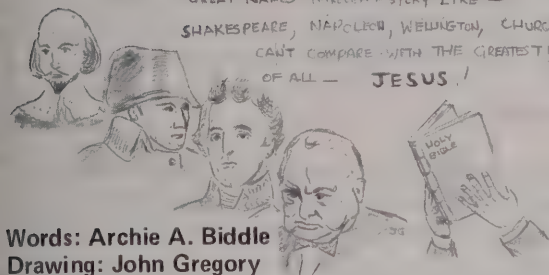 GREAT NAMES
SHAKESPEARE, NAPOLEON, WELLINGTON, CHURC
CAN'T COMPARE WITH THE GREATEST
OF ALL — JESUS!
HOLY
BIBLE
Words: Archie A. Biddle
Drawing: John Gregory